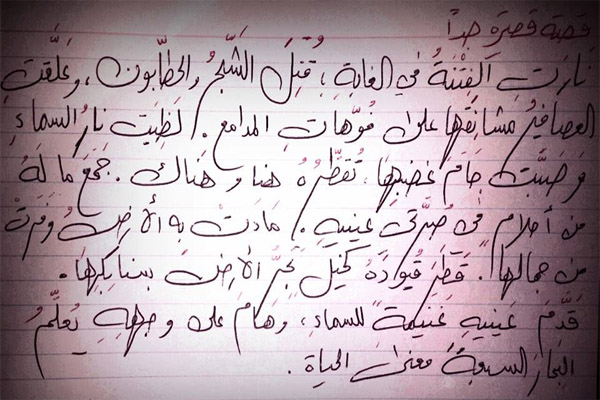 قصة قصيرة جداً
نارَتِ الفِتْنَةُ في الغابةِ، قُتِلَ الشَّجرُ والحطّابون، وعَلَّقتِ
العصافيرُ مشانِقَها على فُوّهاتِ المدامع. لَظِيَت نارُ السماءِ
وَصبَّت جامَ غضبِها، تُقطّرُهُ هنا وهناك. جمَعَ ما لَهُ
من أحلام في صُرَّتَي عينيهِ، مادَتْ به الأرضُ وفَرَتْ
من جمالها. قَطَرَ قيودَهُ كخيلٍ تجرّ الأرضَ بمناكبِها.
قَدَّمَ عينيهِ غنيمةً للسماءِ، وهَامَ على وجهِهِ يُعلّمُ
البحارَ السبعةَ معنى الحياة.